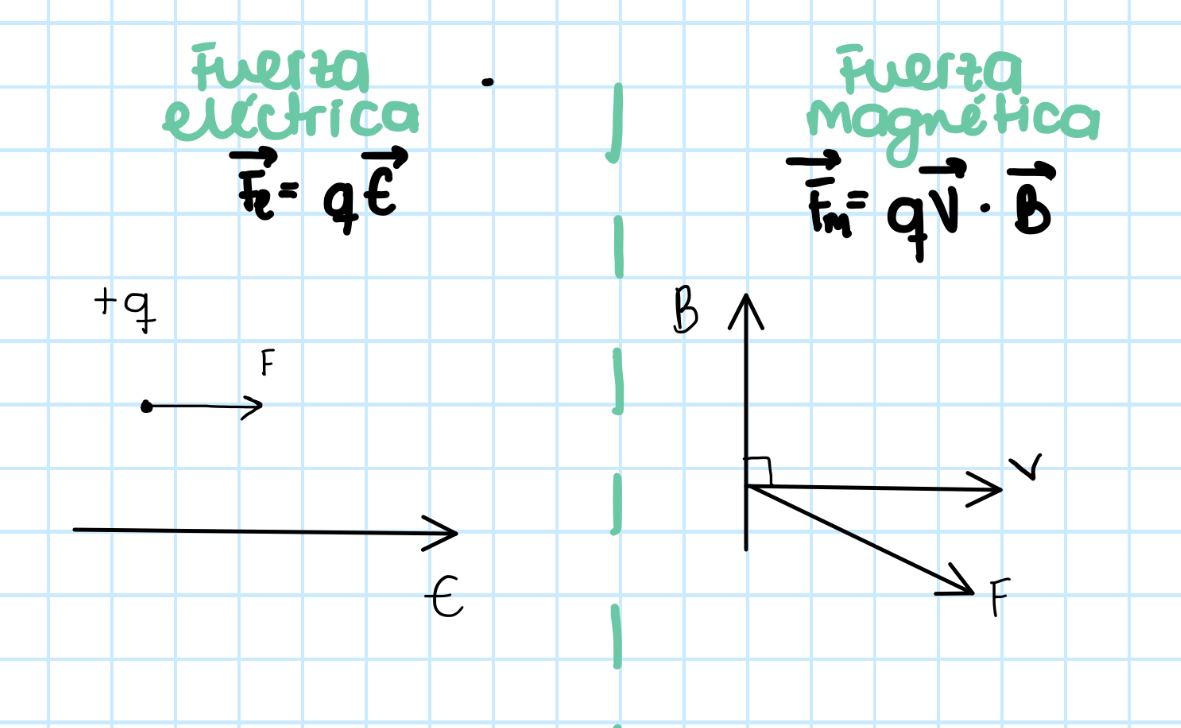 Fuerza
eléctrica
F⃗e = qE⃗
+q
F
E
Fuerza
magnética
F⃗m = qV⃗ · B⃗
B
V
F